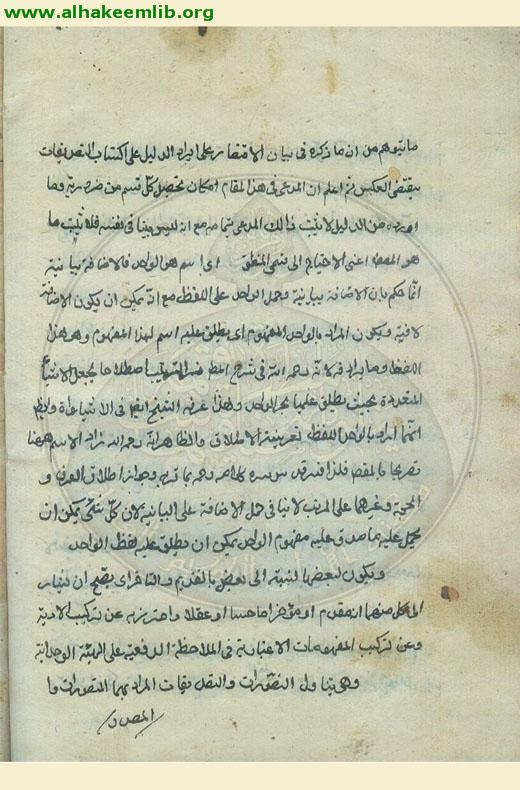 www.alhakeemlib.org
ما يتوهم من ان ما ذكره في بيان الاقتصار على ايراد الدليل على اكتساب التصديقات
يقتضي العكس ثم اعلم ان المدعى في هذا المقام امكان تحصيل كل قسم من ضروريه وما
اورده من الدليل لا يثبت ذلك المدعى بتمامه مع انه ليس بينا في نفسه فلا يثبت ما
هو المقصد اعني الاحتياج الى قسمي المنطق اي اسم هو الواحد فالاضافة بيانية
انما حكم بان الاضافة بيانية وحمل الواحد على اللفظ مع انه يمكن ان يكون الاضافة
لامية ويكون المراد بالواحد المفهوم اي يطلق عليه اسم لهذا المفهوم وهو هذا
اللفظ وما يرادفه لانه رحمه الله في شرح المطالع فسر الترتيب اصطلاحا بجعل الاشياء
المتعددة بحيث يطلق عليها الواحد وهذا
انما اراد بالواحد اللفظ بقرينة الاطلاق والظاهر انه رحمه الله زاد الاسم ههنا
تصريحا بالمقصد فلذا قدس سره كلامه رحمه بما ترى وجواز اطلاق العدد و
وغيرهما على المرتب لا ينافي حمل الاضافة على البيانية لان كل شيء يمكن ان
يحمل عليه ما صدق عليه مفهوم الواحد يمكن ان يطلق عليه لفظ الواحد
ويكون لبعضها نسبة الى بعض بالتقديم والتاخر اي يصح ان يشار
الى كل منهما انه مقدم او مؤخر اما حسا او عقلا واحترز به عن تركيب الادوية
وعن تركيب المفهومات الاعتبارية في الملاحظة الدفعية على الهيئة الوحدانية
وهي يتناول التصورات والتصديقات المراد بهما المتصورات وا
المصدق